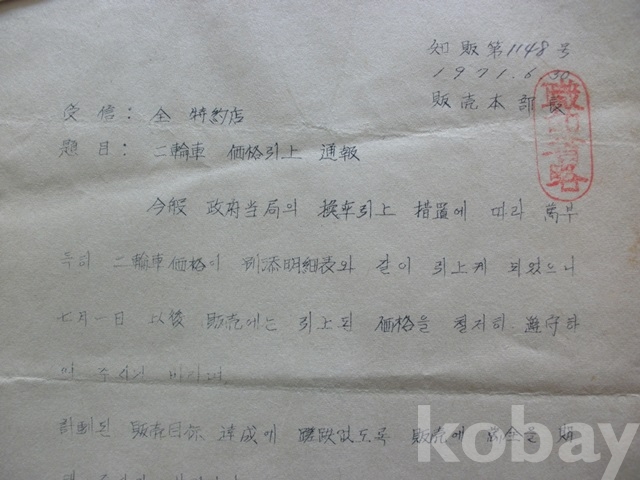 知販第1148号
1971. 6. 30
販売本部長
職印省略
受信: 全 特約店
題目: 二輪車 価格引上 通報
今般 政府当局의 換率引上 措置에 따라 萬부
득히 二輪車価格이 別添明細表와 같이 引上케 되었으니
七月一日 以後 販売에는 引上된 価格을 철저히 遵守하
여 주시기 바라며,
計劃된 販売目標 達成에 蹉跌없도록 販売에 萬全을 期
kobay